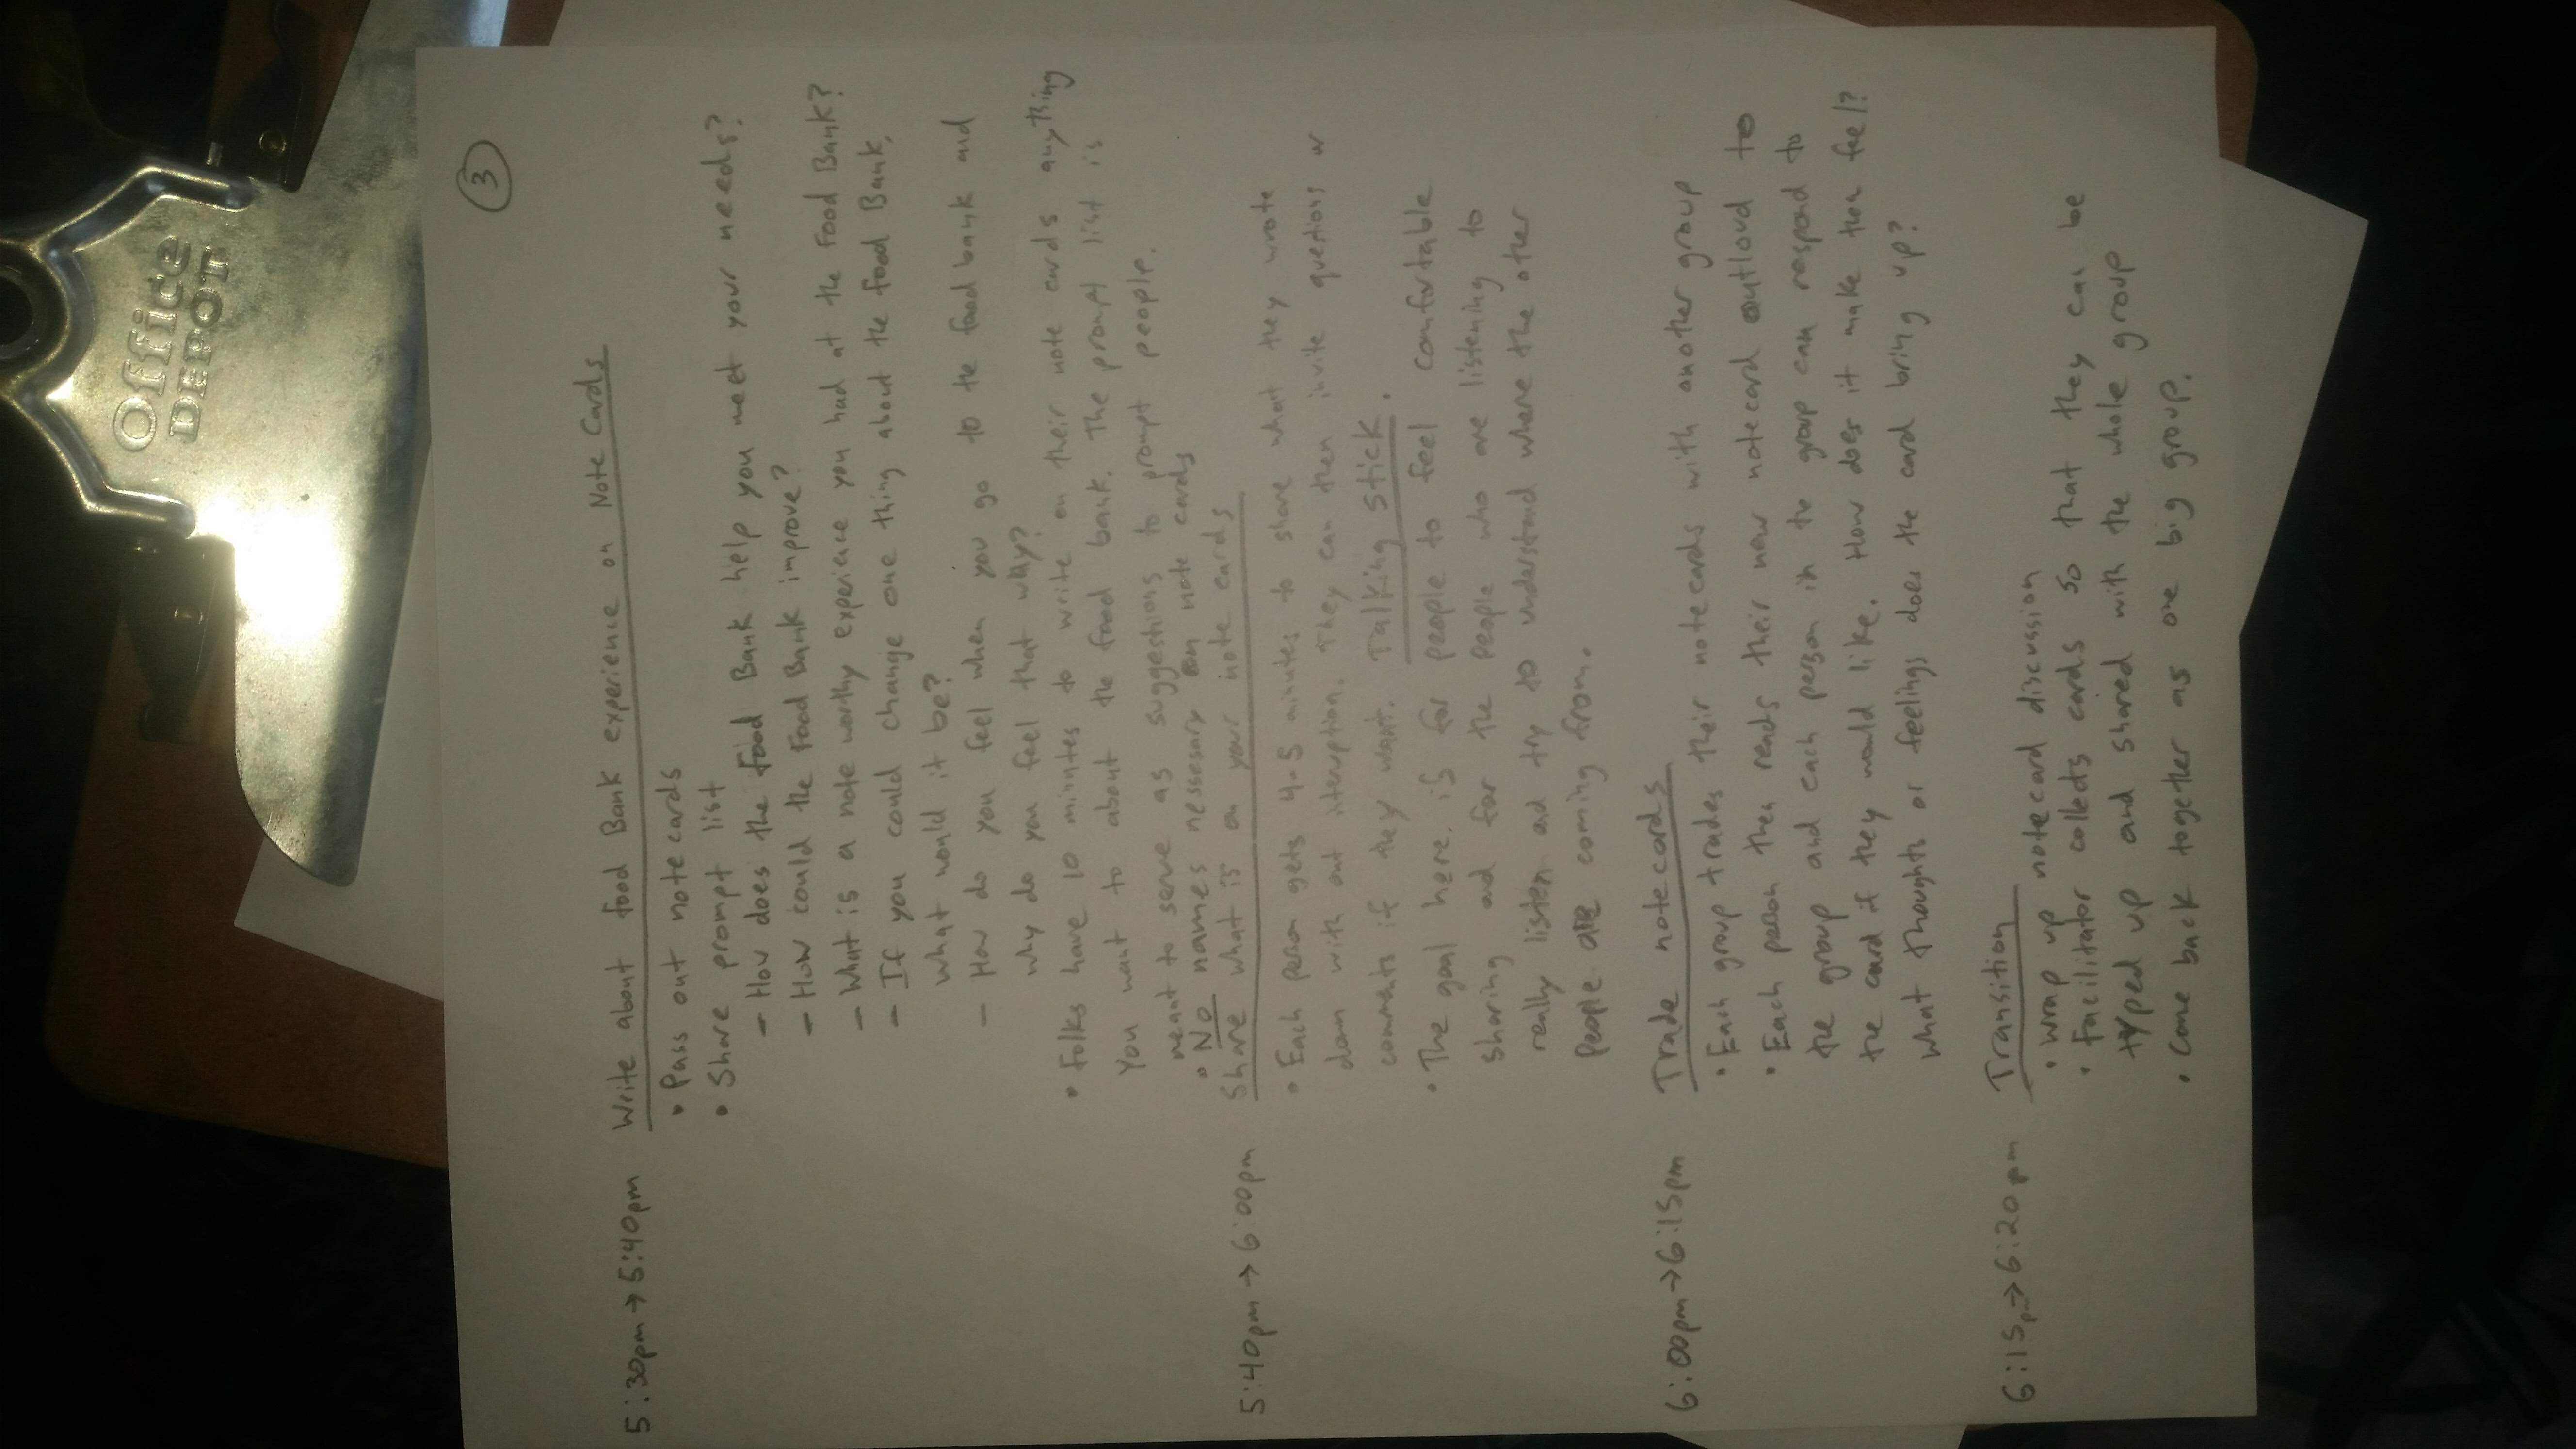 Office
DEPOT
3
5:30pm → 5:40pm Write about food Bank experience on Note Cards
• Pass out notecards
• Share prompt list
- How does the Food Bank help you meet your needs?
- How could the Food Bank improve?
- What is a note worthy experience you had at the Food Bank?
- If you could change one thing about the food Bank,
what would it be?
- How do you feel when you go to the food bank and
why do you feel that way?
• Folks have 10 minutes to write on their note cards anything
you want to about the food bank. The prompt list is
meant to serve as suggestions to prompt people.
• No names nessesary on note cards
5:40pm → 6:00pm Share what is on your note cards
• Each person gets 4-5 minutes to share what they wrote
down with out interuption. They can then invite questions or
comments if they want. Talking stick.
• The goal here is for people to feel comfortable
sharing and for the people who are listening to
really listen and try to understand where the other
people are coming from.
6:00pm → 6:15pm Trade notecards
• Each group trades their notecards with another group
• Each person then reads their new notecard outloud to
the group and each person in the group can respond to
the card if they would like. How does it make them feel?
what thoughts or feelings does the card bring up?
6:15p → 6:20pm Transition
• wrap up notecard discussion
• Facilitator collects cards so that they can be
typed up and shared with the whole group
• Come back together as one big group.